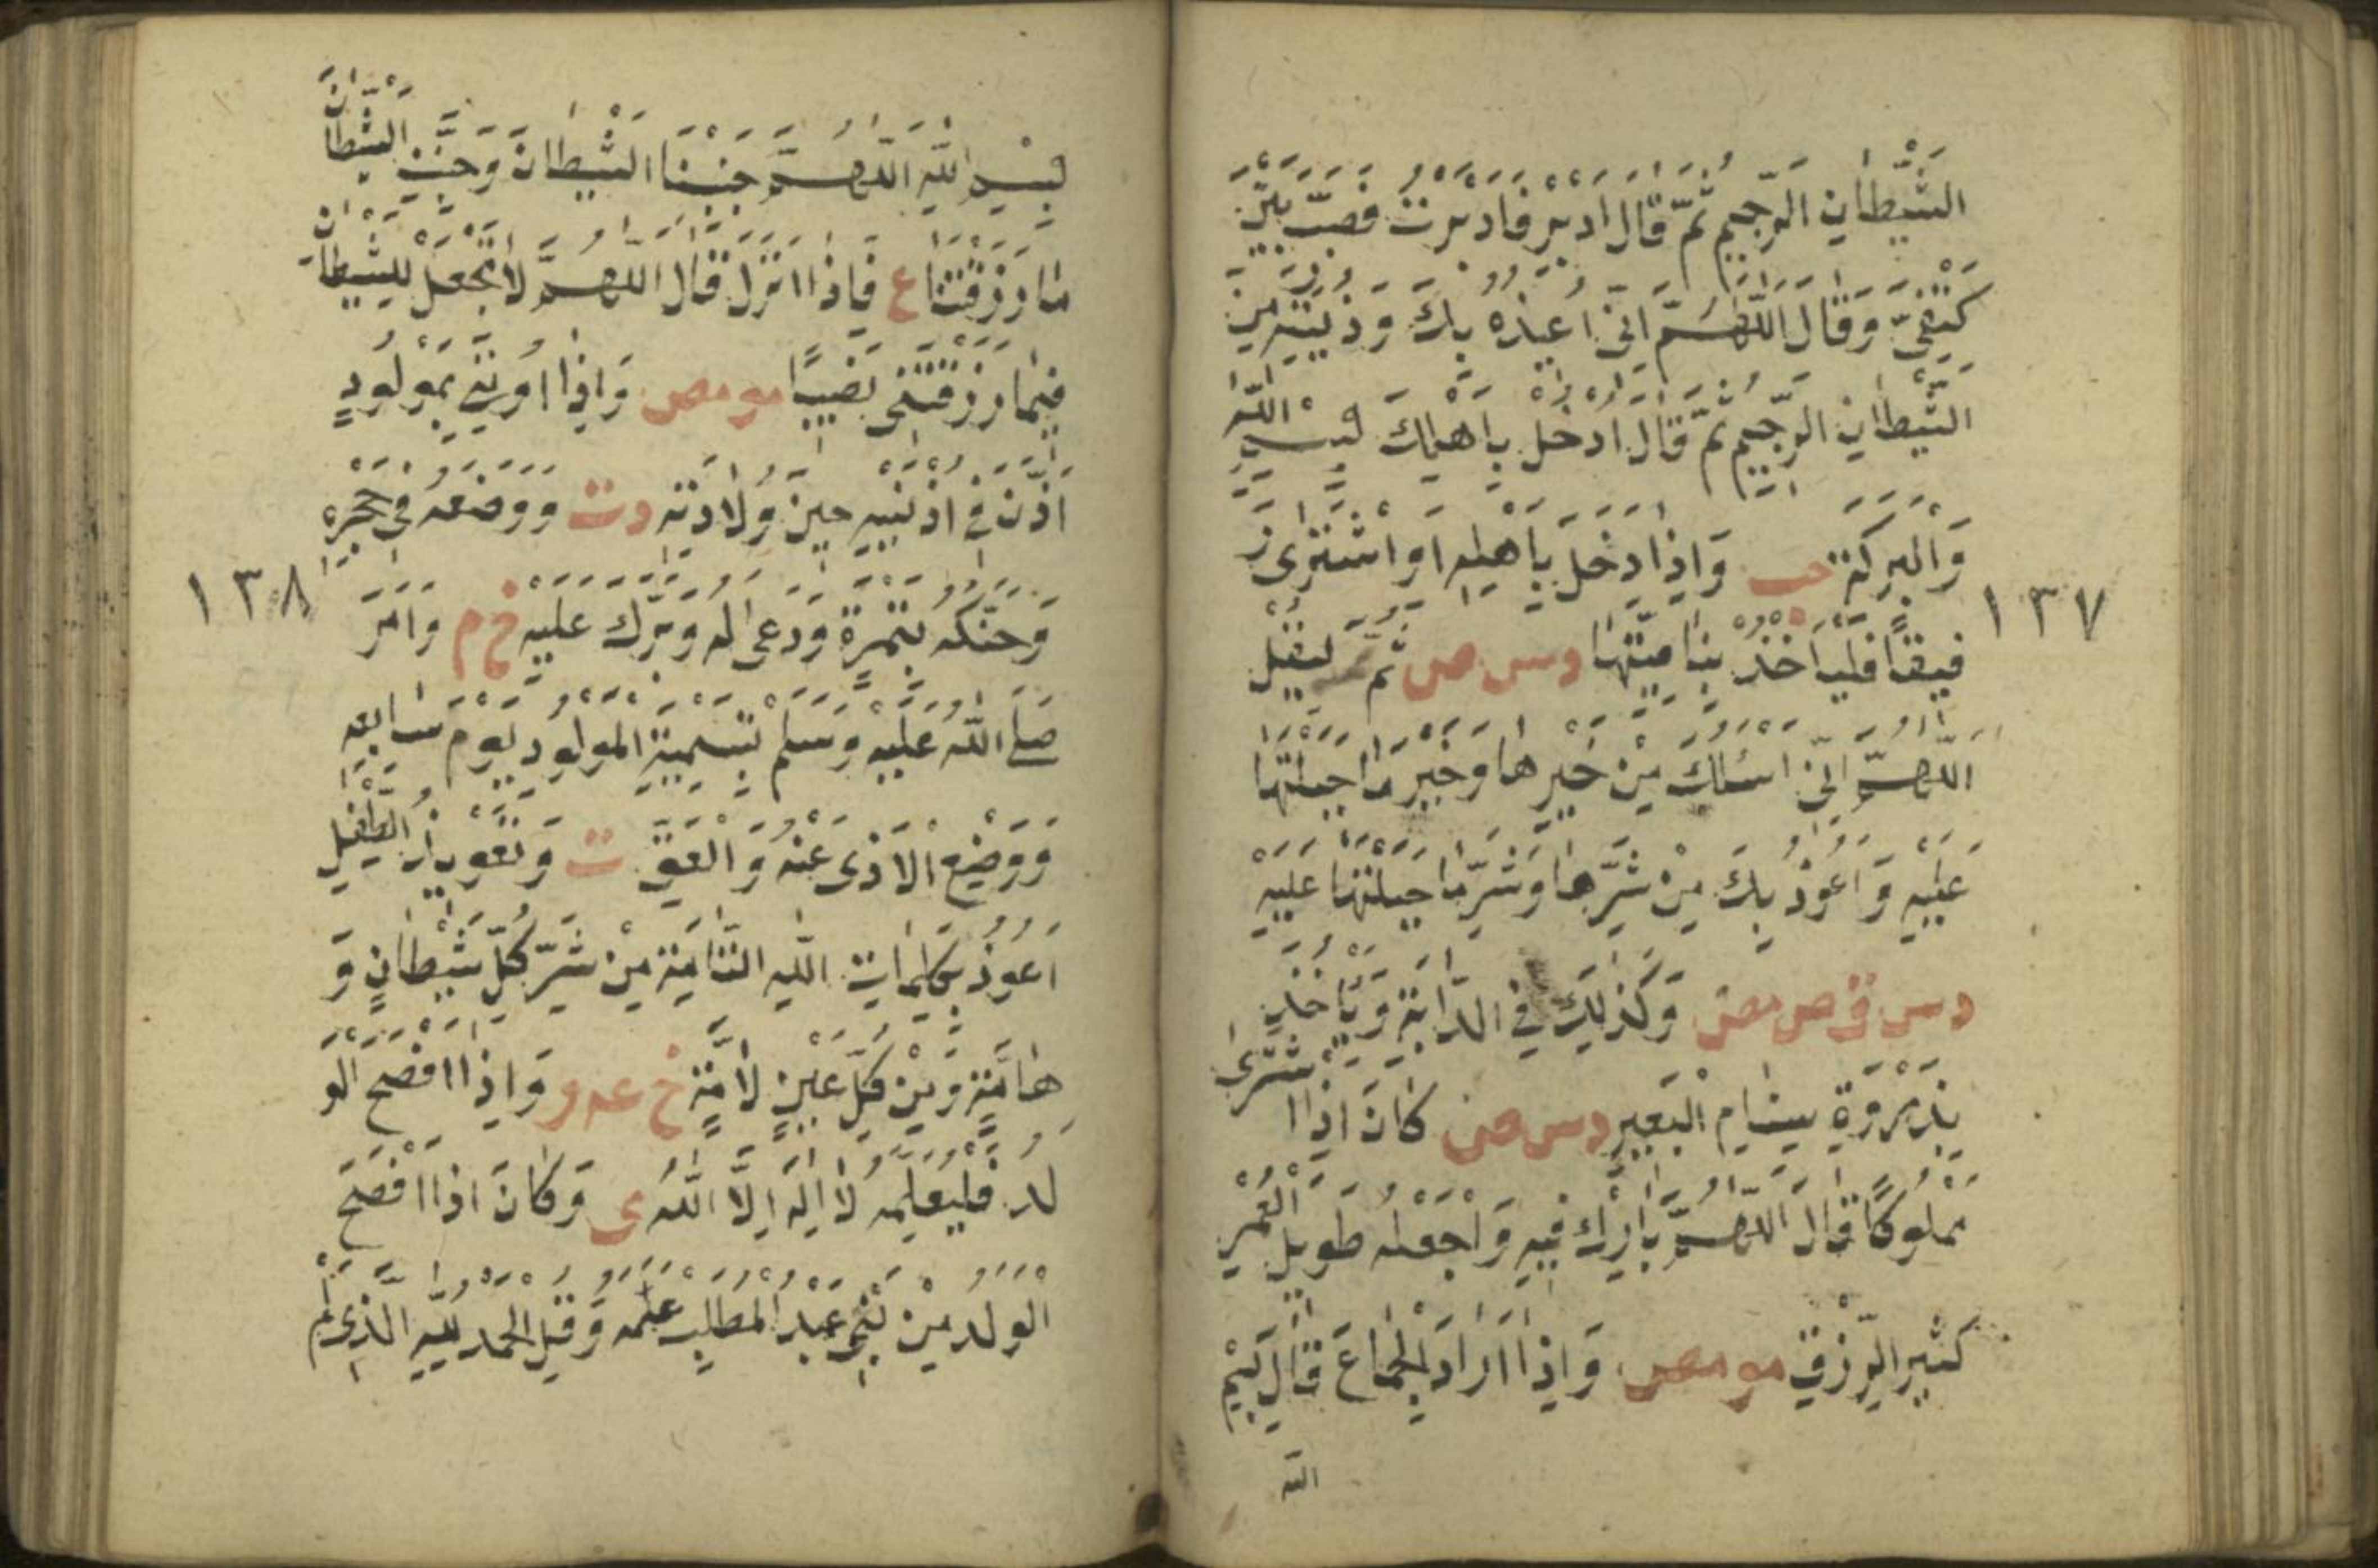 الشَّيْطَانِ الرَّجِيمِ ثُمَّ قَالَ اَدْبِرْ فَاَدْبَرْتُ فَصَبَّ بَيْنَ
كَتِفَيَّ وَقَالَ اللّٰهُمَّ اِنِّي اُعِيذُهُ بِكَ وَذُرِّيَّتَهُ مِنَ
الشَّيْطَانِ الرَّجِيمِ ثُمَّ قَالَ اُدْخُلْ بِاَهْلِكَ بِسْمِ اللّٰهِ
وَالْبَرَكَةِ حب وَاِذَا دَخَلَ بِاَهْلِهِ اَوِ اشْتَرٰى رَ
قِيقًا فَلْيَاْخُذْ بِنَاصِيَتِهَا د س ص ثُمَّ لْيَقُلْ
اَللّٰهُمَّ اِنِّي اَسْئَلُكَ مِنْ خَيْرِهَا وَخَيْرِ مَا جَبَلْتَهَا
عَلَيْهِ وَاَعُوذُ بِكَ مِنْ شَرِّهَا وَشَرِّ مَا جَبَلْتَهَا عَلَيْهِ
د س ق ص مص وَكَذٰلِكَ فِي الدَّابَّةِ وَيَاْخُذُ
بِذِرْوَةِ سِنَامِ الْبَعِيرِ د س ص كَانَ اِذَا اشْتَرٰى
مَمْلُوكًا قَالَ اَللّٰهُمَّ بَارِكْ فِيهِ وَاجْعَلْهُ طَوِيلَ الْعُمْرِ
كَثِيرَ الرِّزْقِ مو مص وَاِذَا اَرَادَ الْجِمَاعَ قَالَ بِسْمِ
الله
١٣٧
بِسْمِ اللّٰهِ اَللّٰهُمَّ جَنِّبْنَا الشَّيْطَانَ وَجَنِّبِ الشَّيْطَانَ
مَا رَزَقْتَنَا ع فَاِذَا اَنْزَلَ قَالَ اَللّٰهُمَّ لَا تَجْعَلْ لِلشَّيْطَانِ
فِيمَا رَزَقْتَنِي نَصِيبًا مو مص وَاِذَا اُوتِيَ بِمَوْلُودٍ
اَذَّنَ فِي اُذْنَيْهِ حِينَ وُلَادَتِهِ د ت وَوَضَعَهُ فِي حَجْرِهِ
وَحَنَّكَهُ بِتَمْرَةٍ وَدَعٰى لَهُ وَبَرَّكَ عَلَيْهِ خ م وَاَمَرَ
صَلَّى اللّٰهُ عَلَيْهِ وَسَلَّمَ بِتَسْمِيَةِ الْمَوْلُودِ يَوْمَ سَابِعِهِ
وَوَضْعِ الْاَذٰى عَنْهُ وَالْعَقِّ ت وَتَعْوِيذُ الطِّفْلِ
اَعُوذُ بِكَلِمَاتِ اللّٰهِ التَّامَّةِ مِنْ شَرِّ كُلِّ شَيْطَانٍ وَ
هَامَّةٍ وَمِنْ كُلِّ عَيْنٍ لَامَّةٍ خ عه و وَاِذَا اَفْصَحَ الْوَ
لَدُ فَلْيُعَلِّمْهُ لَا اِلٰهَ اِلَّا اللّٰهُ ى وَكَانَ اِذَا اَفْصَحَ
الْوَلَدُ مِنْ بَنِي عَبْدِ الْمُطَّلِبِ عَلَّمَهُ وَقُلِ الْحَمْدُ لِلّٰهِ الَّذِي لَمْ
١٣٨